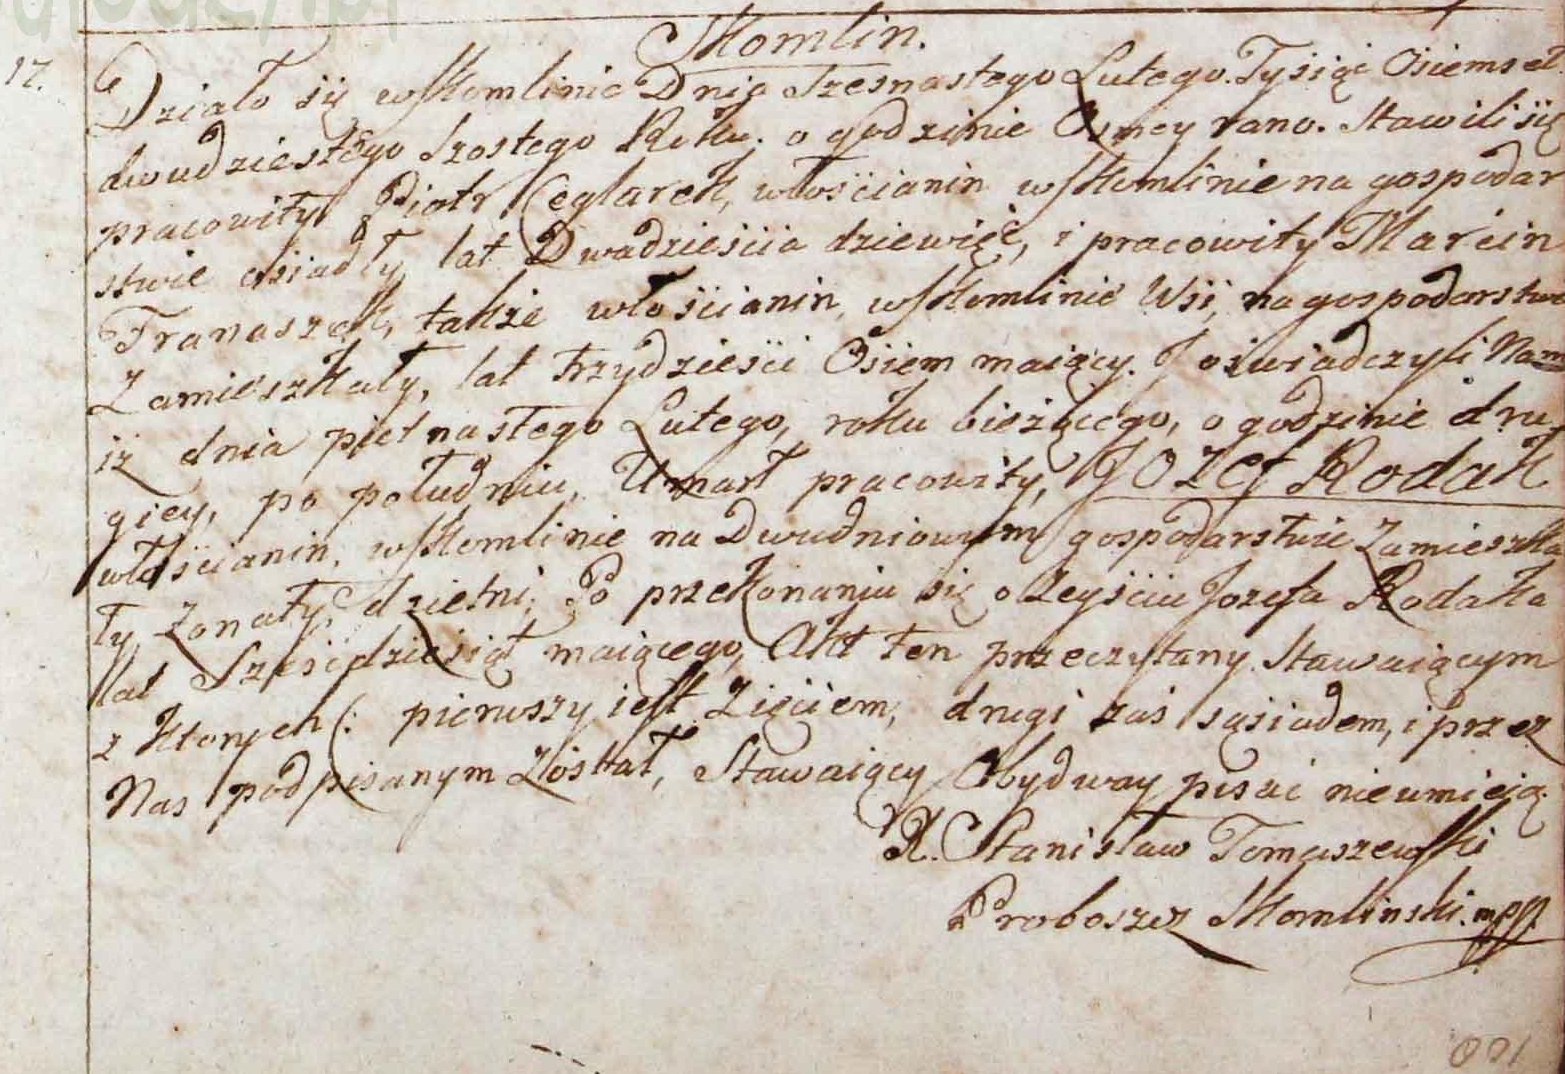 Skomlin.
17. Działo się w Skomlinie Dnia Szesnastego Lutego. Tysiąc Ośiemset
dwudziestego Szostego Roku. o godzinie Osmey rano. Stawili się
pracowity Piotr Ceglarek, włościanin w Skomlinie na gospodar
stwie osiadły, lat Dwadzieścia dziewięć, i pracowity Marcin
Franaszek, także włościanin, w Skomlinie Wsi, na gospodarstwie
Zamieszkały, lat trzydzieści Ośiem maiący. I oświadczyli Nam
iż dnia pietnastego Lutego, roku bieżącego, o godzinie dru
giey, po południu, Umarł pracowity, Jozef Rodak
włościanin, w Skomlinie na Dwudniowym gospodarstwie Zamieszka
ły Zonaty, dzietni, Po przekonaniu się o Zeyściu Jozefa Rodaka
lat Sześćdziesiąt maiącego, Akt ten przeczytany Stawaiącym
z ktorych (: pierwszy iest Zięciem, drugi zaś sąsiadem, i przez
Nas podpisanym Został, Stawaiący Obydway pisać nieumieią.
X. Stanisław Tomaszewski
Proboszcz Skomlinski. mpp.